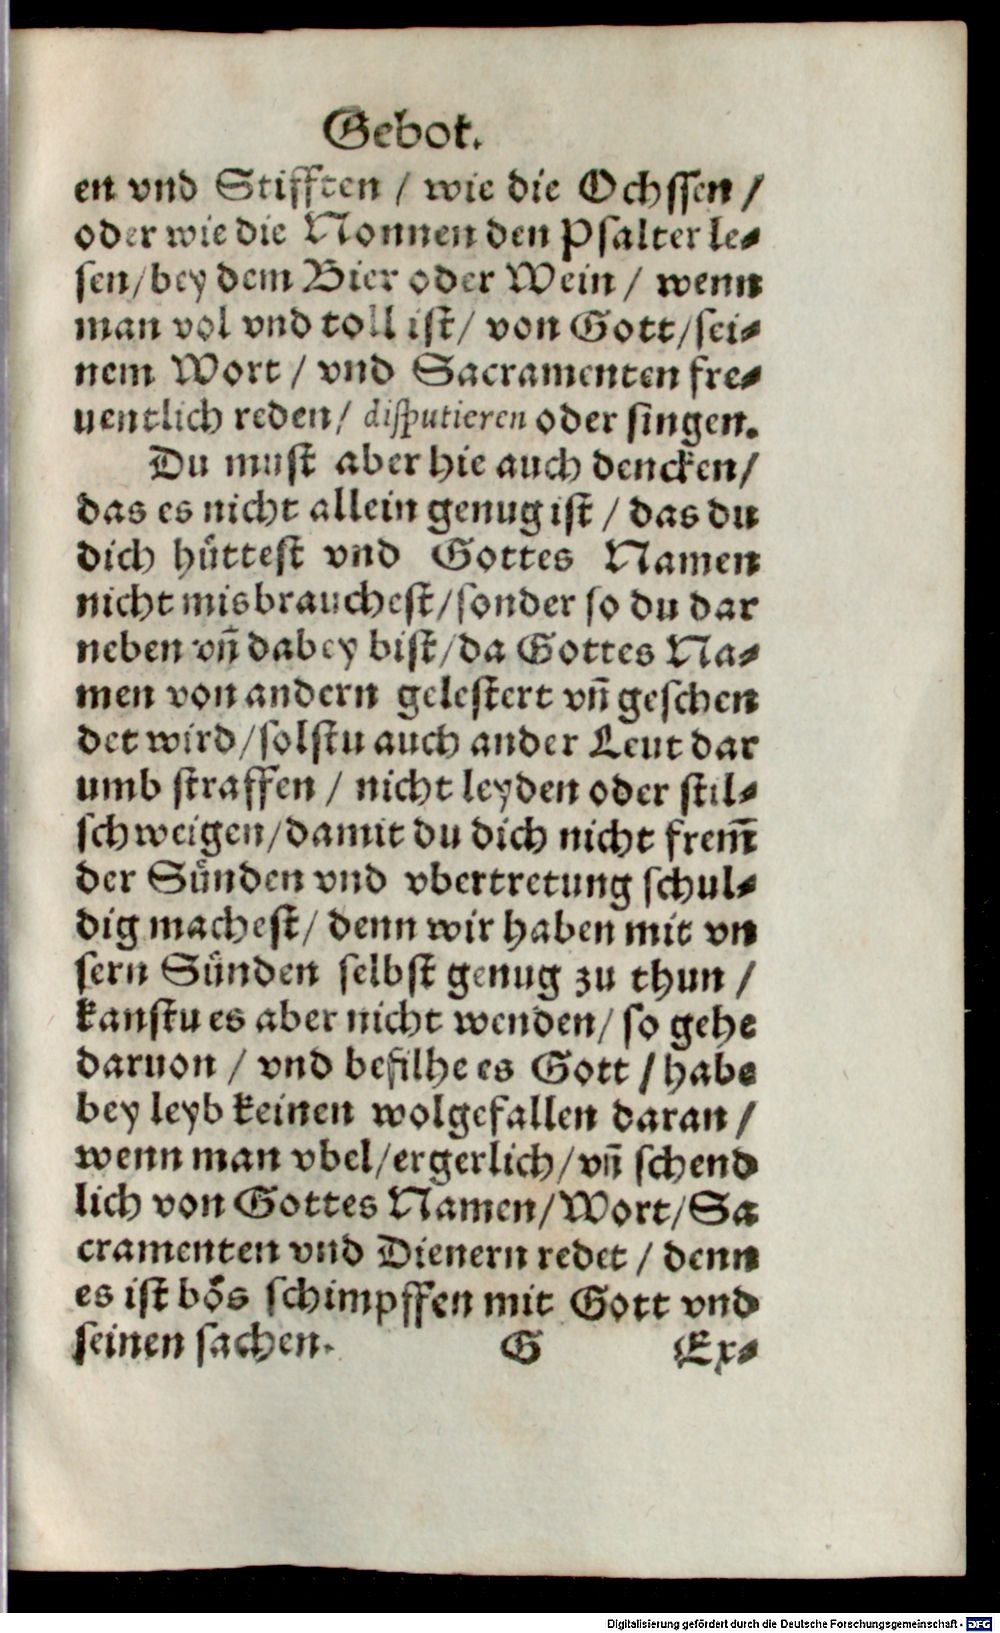 Gebot.
en vnd Stifften / wie die Ochssen /
oder wie die Nonnen den Psalter le⸗
sen/bey dem Bier oder Wein / wenn
man vol vnd toll ist/ von Gott/sei⸗
nem Wort / vnd Sacramenten fre⸗
uentlich reden/ disputieren oder singen.
Du must aber hie auch dencken/
das es nicht allein genug ist / das du
dich hüttest vnd Gottes Namen
nicht misbrauchest/sonder so du dar
neben vñ dabey bist/da Gottes Na⸗
men von andern gelestert vñ geschen
det wird/solstu auch ander Leut dar
umb straffen / nicht leyden oder stil⸗
schweigen/damit du dich nicht frem̃
der Sünden vnd vbertretung schul⸗
dig machest/ denn wir haben mit vn
sern Sünden selbst genug zu thun /
kanstu es aber nicht wenden/ so gehe
daruon / vnd befilhe es Gott / habe
bey leyb keinen wolgefallen daran /
wenn man vbel/ergerlich/vñ schend
lich von Gottes Namen/Wort/Sa
cramenten vnd Dienern redet / denn
es ist bös schimpffen mit Gott vnd
seinen sachen. G Ex⸗
Digitalisierung gefördert durch die Deutsche Forschungsgemeinschaft - DFG